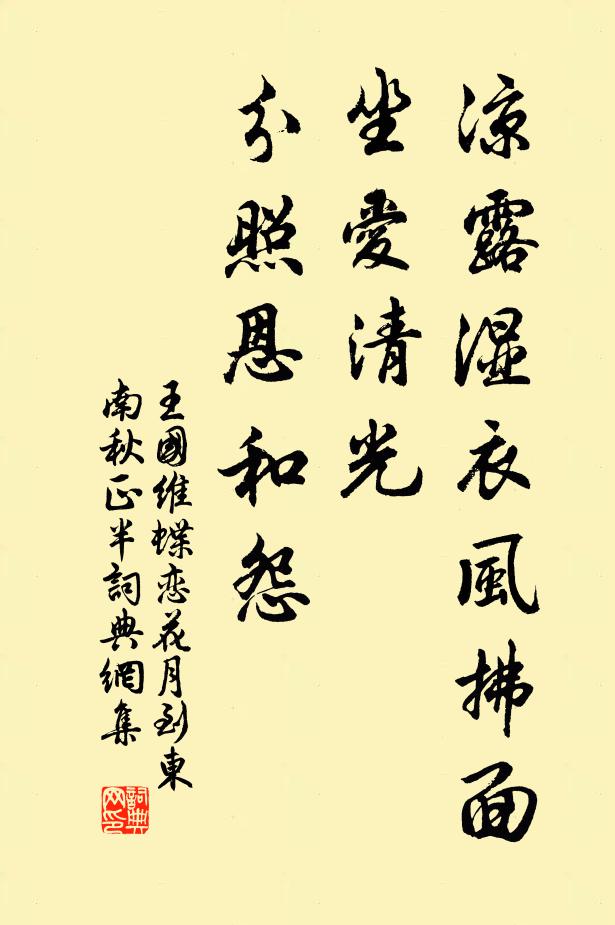 凉露湿衣風拂面
坐愛清光
分照恩和怨
王國維蝶恋花月到東
南秋正半詞典網集
詞典网印